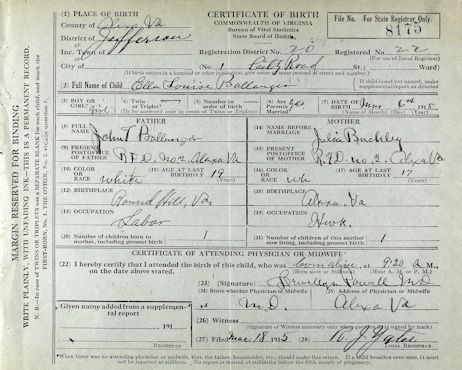 (1) PLACE OF BIRTH
CERTIFICATE OF BIRTH
COMMONWEALTH OF VIRGINIA
Bureau of Vital Statistics
State Board of Health.
File No.—For State Registrar Only.
8175
County of Va
District of Jefferson
or
Inc. Town of
Registration District No. 20
Registered No. 22
(For use of Local Registrar)
or
City of (No. 1 Road St.; Ward)
(If birth occurs in a hospital or other institution, give name of same instead of street and number.)
(2) Full Name of Child Ella Louise Ballenger
If child is not yet named, make supplemental report as directed
(3) BOY OR GIRL? girl
(4) Twin or Triplet?
(5) Number in order of birth
(To be answered only in event of Twins or Triplets)
(6) Are Parents Married? yes
(7) DATE OF BIRTH Mar 6th 1915
FATHER
MOTHER
(8) FULL NAME John T Ballenger
(14) NAME BEFORE MARRIAGE Julia Buckley
(9) PRESENT POSTOFFICE OF FATHER R.F.D. No 2. Alexa Va
(15) PRESENT POSTOFFICE OF MOTHER R.F.D. no 2. Alexa Va
(10) COLOR OR RACE white
(11) AGE AT LAST BIRTHDAY 19 (Years)
(16) COLOR OR RACE wh
(17) AGE AT LAST BIRTHDAY 17 (Years)
(12) BIRTHPLACE Round Hill, Va
(18) BIRTHPLACE Alexa. Va
(13) OCCUPATION Labor
(19) OCCUPATION Hwk
(20) Number of children born to mother, including present birth 1
(21) Number of children of this mother now living, including present birth 1
CERTIFICATE OF ATTENDING PHYSICIAN OR MIDWIFE
(22) I hereby certify that I attended the birth of this child, who was born alive at 9:20 a M.,
on the date above stated.
(Born alive or Stillborn) (Hour A. M. or P. M.)
(23) (Signature) Llewellyn Powell MD
(24) State whether Physician or Midwife
(25) Address of Physician or Midwife
M.D. Alexa Va
Given name added from a supplemental report
191
REGISTRAR
(26) Witness
(Signature of Witness necessary only when question 23 is signed by mark)
(27) Filed Mar 18 1915
(28)
LOCAL REGISTRAR.
*When there was no attending physician or midwife, then the father, householder, etc., should make this return. If a child breathes even once, it must not be reported as stillborn. No report is desired of stillbirths before the fifth month of pregnancy.
MARGIN RESERVED FOR BINDING
WRITE PLAINLY, WITH UNFADING INK—THIS IS A PERMANENT RECORD.
N. B.—In case of TWINS or TRIPLETS use a SEPARATE BLANK for each child, and mark the
FIRST-BORN, No. 1, THE OTHER, No. 2, etc.